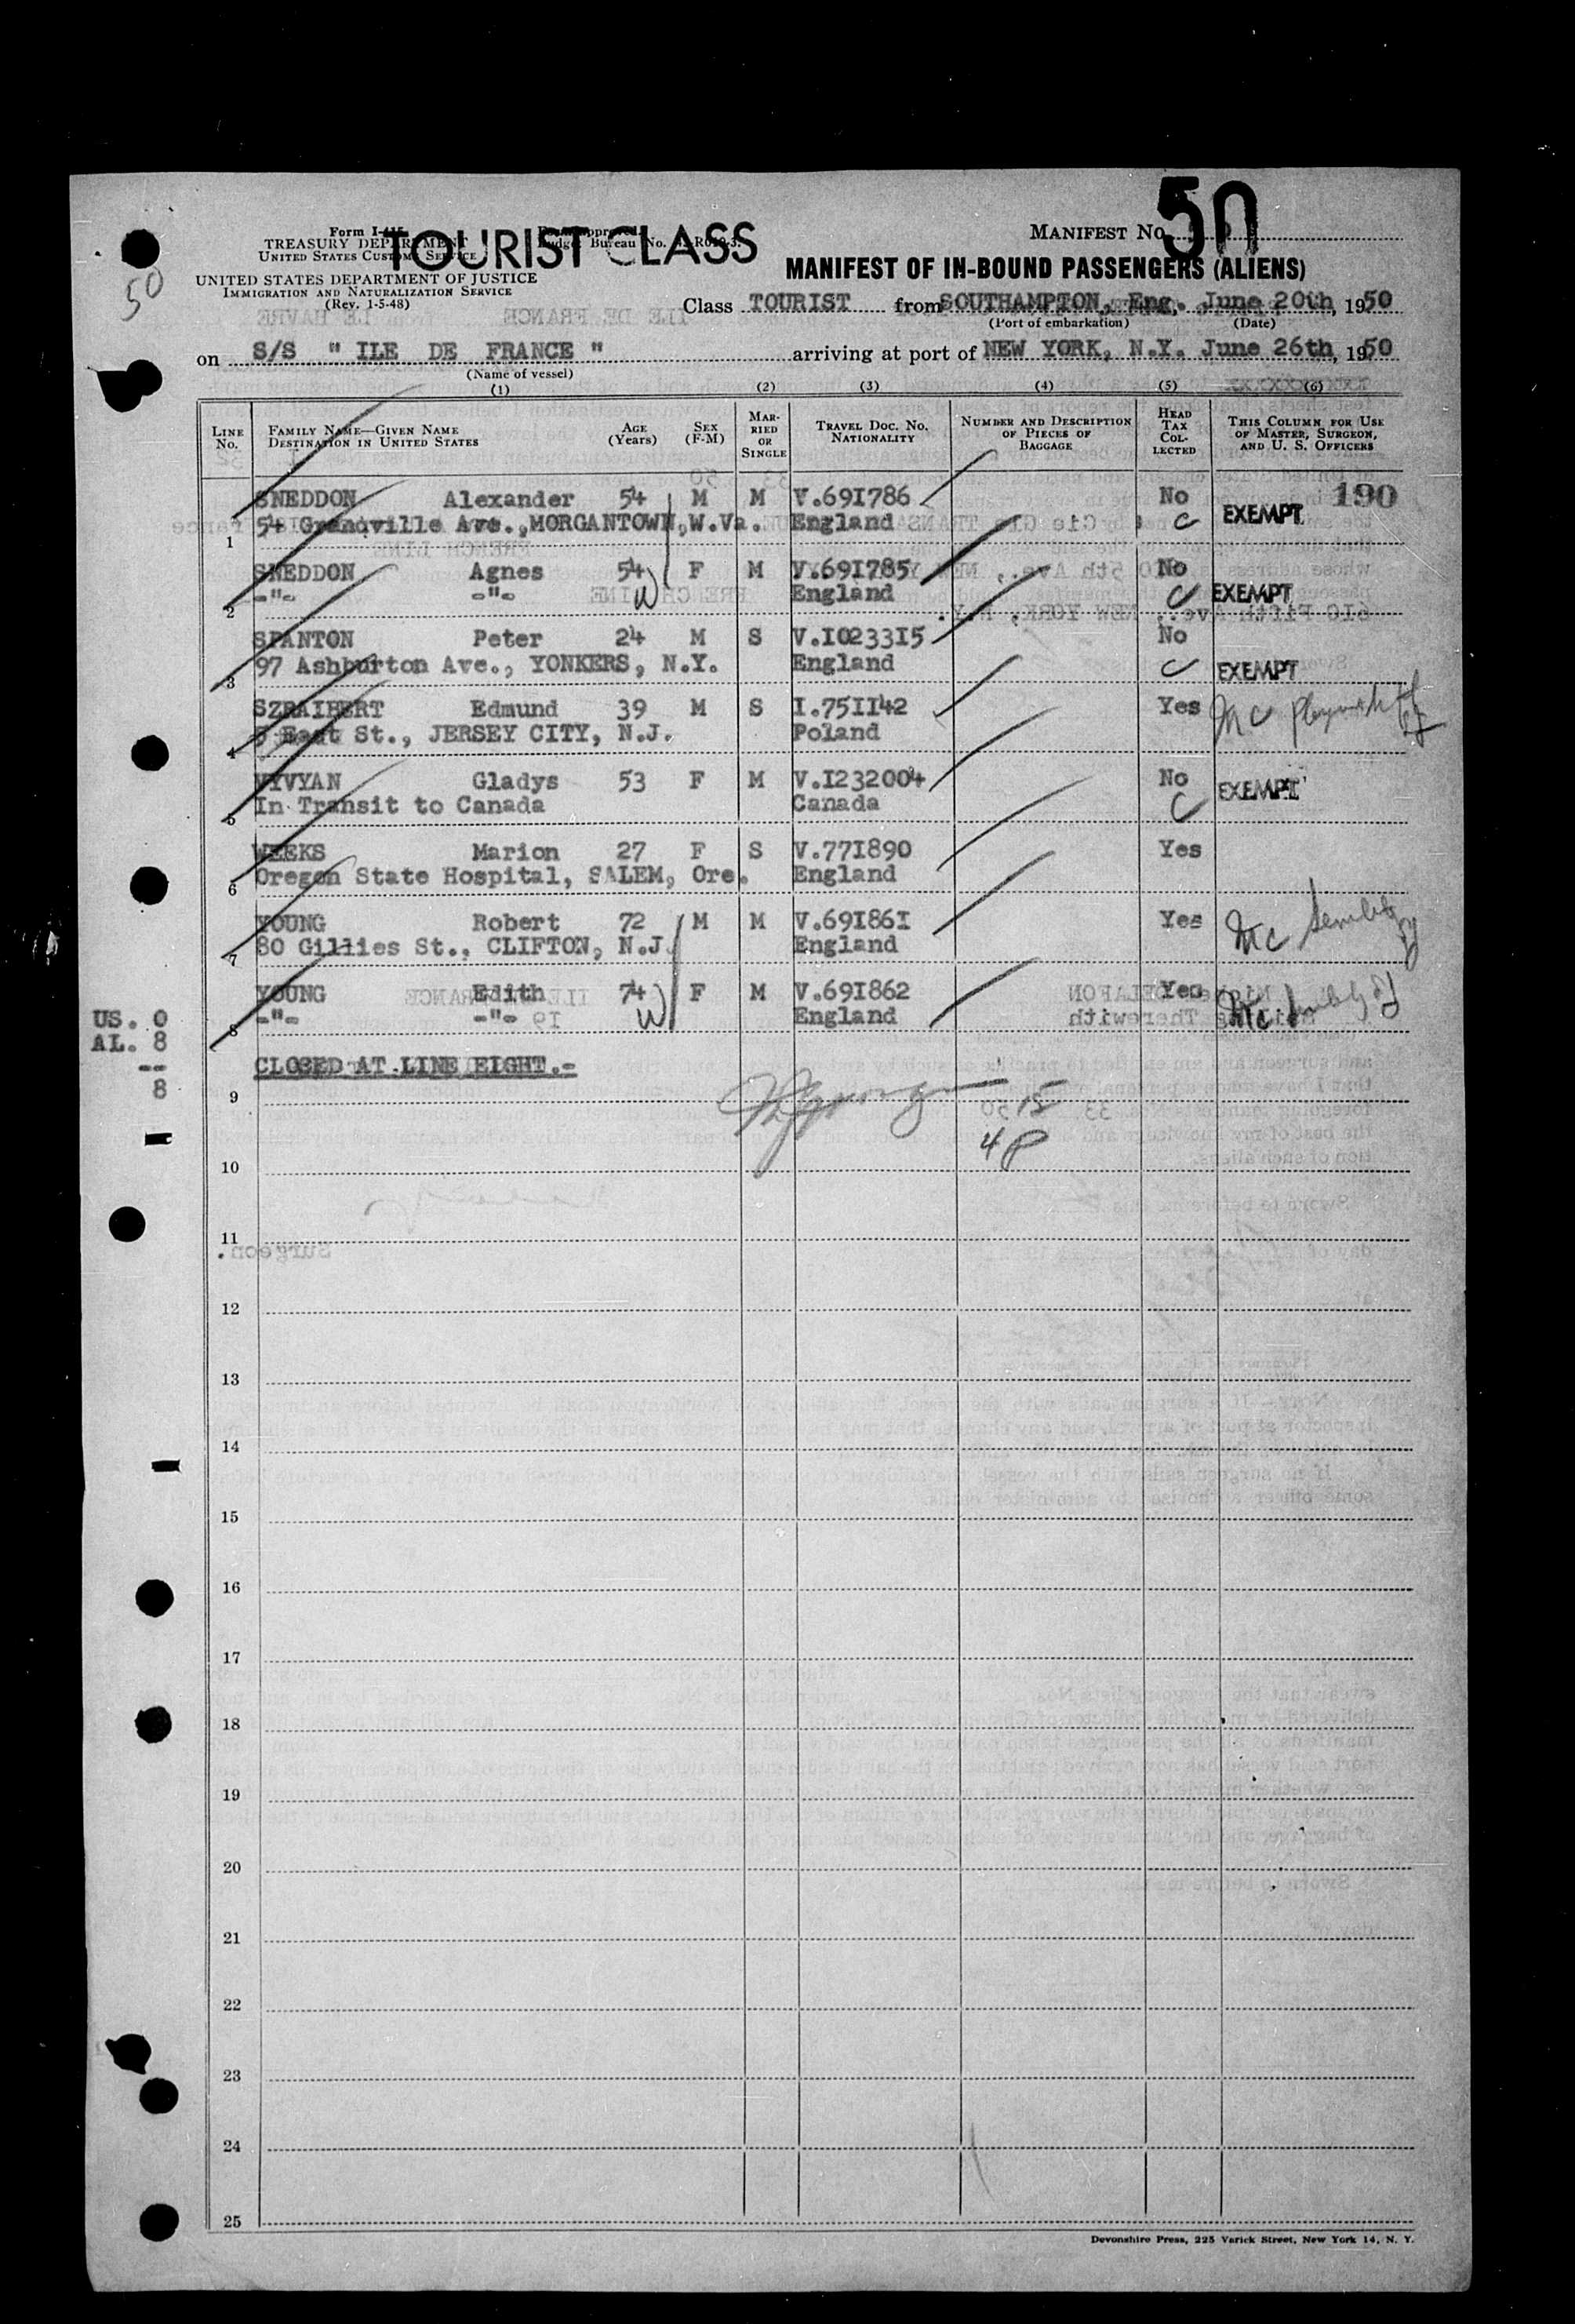 50
50
Form I-415
TREASURY DEPARTMENT
UNITED STATES CUSTOMS SERVICE
TOURIST CLASS
MANIFEST NO.
UNITED STATES DEPARTMENT OF JUSTICE
IMMIGRATION AND NATURALIZATION SERVICE
(Rev. 1-5-48)
MANIFEST OF IN-BOUND PASSENGERS (ALIENS)
Class TOURIST from SOUTHAMPTON, Eng. June 20th, 1950
(Port of embarkation) (Date)
on S/S " ILE DE FRANCE " arriving at port of NEW YORK, N.Y. June 26th, 1950
(Name of vessel)
(1) (2) (3) (4) (5) (6)
LINE No. FAMILY NAME—GIVEN NAME DESTINATION IN UNITED STATES AGE (Years) SEX (F-M) MARRIED OR SINGLE TRAVEL DOC. NO. NATIONALITY NUMBER AND DESCRIPTION OF PIECES OF BAGGAGE HEAD TAX COLLECTED THIS COLUMN FOR USE OF MASTER, SURGEON, AND U. S. OFFICERS
SNEDDON Alexander 54 M M V.691786 No 190
1 54 Grandville Ave.,MORGANTOWN,W.Va. England C EXEMPT
SNEDDON Agnes 54 F M V.691785 No
2 -"- -"- W England C EXEMPT
SPANTON Peter 24 M S V.1023315 No
3 97 Ashburton Ave., YONKERS, N.Y. England C EXEMPT
SZRAIBERT Edmund 39 M S I.751142 Yes Mc
4 5 East St., JERSEY CITY, N.J. Poland
VYVYAN Gladys 53 F M V.1232004 No
5 In Transit to Canada Canada C EXEMPT
WEEKS Marion 27 F S V.771890 Yes
6 Oregon State Hospital, SALEM, Ore. England
YOUNG Robert 72 M M V.691861 Yes Mc Senility
7 80 Gillies St., CLIFTON, N.J. England
YOUNG Edith 74 F M V.691862 Yes
8 -"- -"- W England Mc Senility
US. 0
AL. 8
--
8
CLOSED AT LINE EIGHT.-
9
15
4P
10
11
12
13
14
15
16
17
18
19
20
21
22
23
24
25
Devonshire Press, 225 Varick Street, New York 14, N. Y.